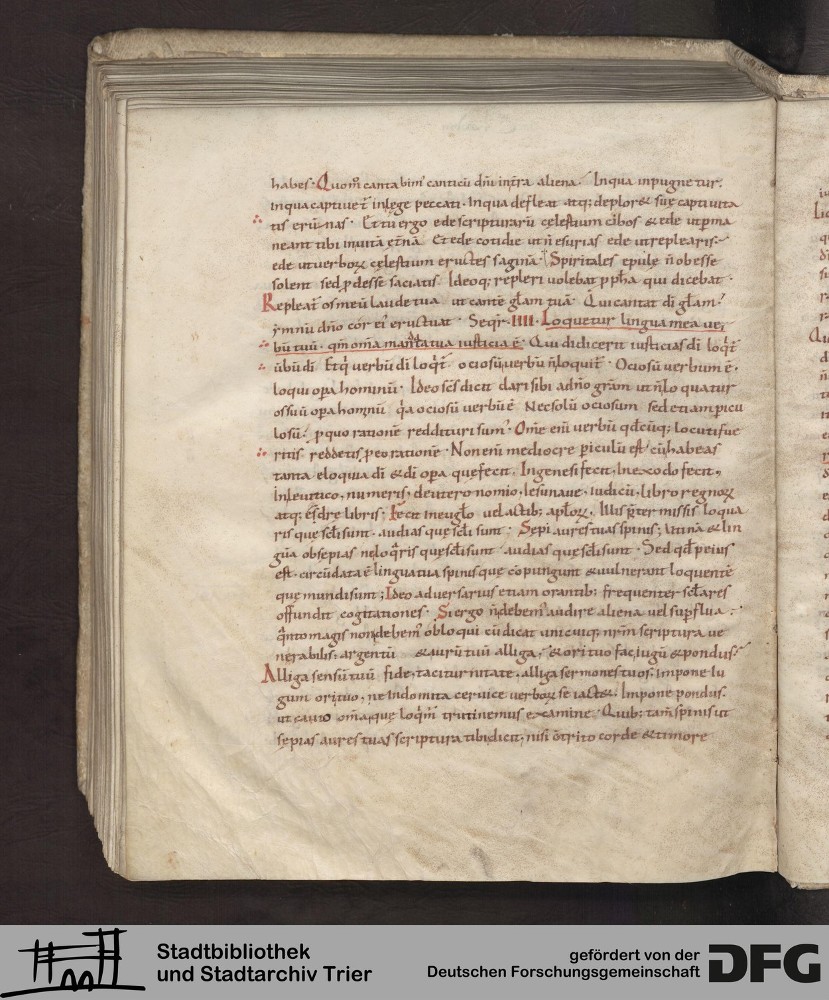 habes. Quom̄ cantabim' canticū dn̄i in t̄ra aliena. In qua inpugnetur.
in qua captiuet̄ in lege peccati. In qua defleat atq; deplor& suę captiuita
tis erūnas. Et tu ergo ede scripturarū cęlestium cibos & ede ut p̱ma
neant tibi in uitā et̄nā. Et ede cotidie ut n̄ esurias ede ut replearis.
ede ut uerboꝝ cęlestium eructes saginā. Spiritales epulę n̄ obesse
solent sed ꝓdesse saciatis. Ideoq; repleri uolebat ꝓph̄a qui dicebat.
Repleat̄ os meū laude tua ut cantē gl̄am tuā. Qui cantat di gl̄am.
ymnū dn̄o cor ei' eructuat. Seqr̄. IIII. Loquetur lingua mea uer
bū tuū. qm̄ om̄a mandata tua iusticia ē. Qui didicerit iusticias di loq̄t̄
ūbū di. Et q̄ uerbū di loq̄t̄ ociosū uerbū n̄ loquit̄. Ociosū uerbum ē.
loqui oꝑa hominū. Ideo sc̄s dicit dari sibi a dn̄o gram ut n̄ loquatur
ossuū oꝑa hominū q̄a ociosū uerbū ē. Nec solū ociosum sed etiam ꝑicu
losū. ꝓ quo rationē reddituri sum'. Om̄e eni uerbū qd̄cūq; locuti fue
ritis reddetis ꝓ eo rationē. Non eni mediocre ꝑiculū est cū habeas
tanta eloquia di & di oꝑa que fecit. In genesi fecit, In exodo fecit,
in leuitico, numeris, deuteronomio, Iesu naue, iudicū, libro regnoꝝ
atq; esdre libris. Fecit in eugl̄o uel actib; apl̄oꝝ. Illis p̄termissis loqua
ris quę sc̄li sunt. audias quę sc̄li sunt. Sepi aures tuas spinis; utinā & lin
guā obsepias ne loq̄ris quę sc̄li sunt audias quę sc̄li sunt. Sed qd̄ peius
est. circūdata ē lingua tua spinis quę cōpungunt & uulnerant loquentē
quę mundi sunt; Ideo aduersarius etiam orantib; frequenter sc̄lares
offundit cogitationes. Si ergo n̄ debem' audire aliena uel sup̱flua;
q̄nto magis non debem' obloqui cū dicat unicuiq; nrm̄ scriptura ue
nerabilis; argentū & aurū tuū alliga, & ori tuo fac iugū & pondus.
Alliga sensū tuū fide, taciturnitate, alliga sermones tuos. Impone iu
gum ori tuo, ne indomita ceruice uerboꝝ se iact&. Impone pondus.
ut cauto om̄a que loq̄m̄ trutinemus examine. Quib; tam̄ spinis ut
sępias aures tuas scriptura tibi dicit; nisi cōtrito corde & timore
Stadtbibliothek
und Stadtarchiv Trier
gefördert von der
Deutschen Forschungsgemeinschaft
DFG